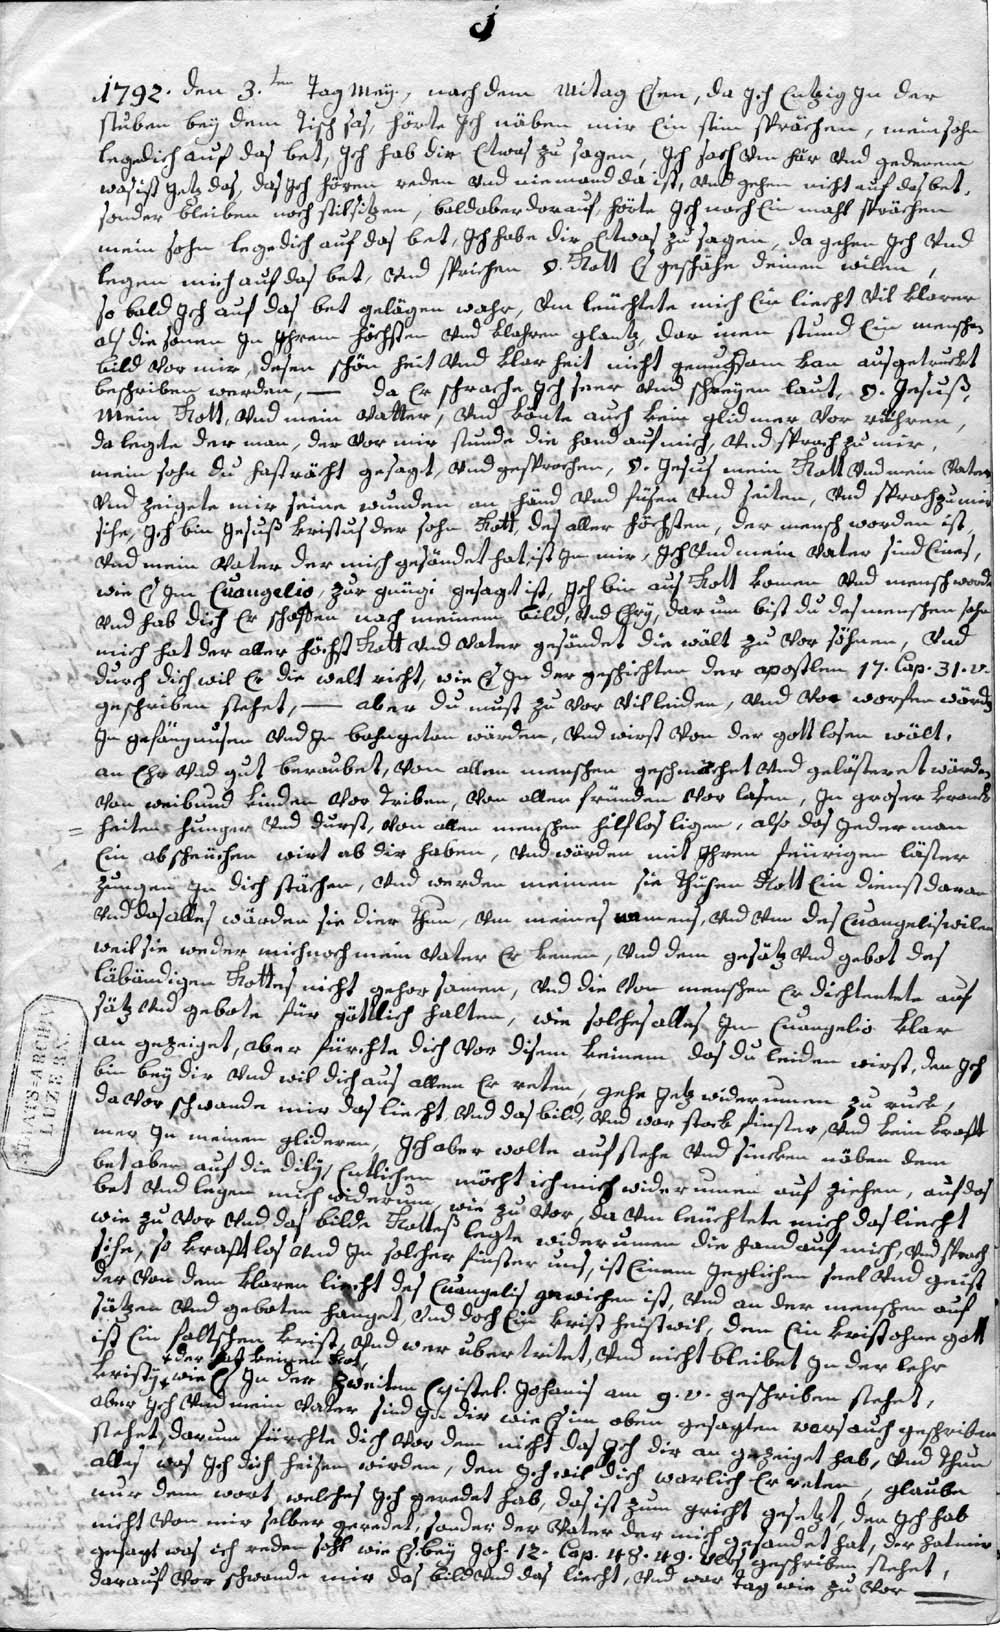 j
1792. den 3.ten Tag Mey., nach dem Mitag Esen, da Jch Eintzig Jn der
stuben bey dem Tisch sas, hörte Jch näben mir Ein stim sprächen, mein sohn
lege dich auf das bet, Jch hab dir Etwas zu sagen, Jch sach um här und gedenen
was ist Jetz das, das Jch hören reden und niemand da ist, und gehen nicht auf das bet,
sonder bleiben noch stil sitzen, bald aber darauf, hörte Jch noch Ein mahl sprächen
mein sohn lege dich auf das bet, Jch habe dir Etwas zu sagen, da gehen Jch und
legen mich auf das bet, und sprichen O. Gott Es geschähe deinen wilen,
so bald Jch auf das bet gelägen wahr, um leüchtete mich Ein liecht vil klarer
als die sonen Jn Jhrem höchsten und klahren glantz, dar inen stund Ein menschen
bild vor mir, desen schön heit und klar heit nicht genuchsam kan ausgetruckt
beschriben werden, — da Er schrache Jch seer und schreyen laut, O. Jesuß,
Mein Gott, und mein Vatter, und könte auch kein glid mer vor rühren,
da legte der man, der vor mir stunde die hand auf mich, und sprach zu mir,
mein sohn du hast rächt gesagt, und gesprochen, O. Jesus mein Gott und mein Vater
und zeigete mir seine wunden an händ und füsen und seiten, und sprach zu mir
sihe, Jch bin Jesuß kristus der sohn Gott, des aller höchsten, der mensch worden ist
und mein Vater der mich gesändet hat, ist Jn mir, Jch und mein Vater sind Eines,
wie Es Jm Euangelio, zur günigi gesagt ist, Jch bin aus Gott komen und mensch worden
und hab dich Er schaffen nach meinem bild, und Ehry, dar um bist du des menschen sohn
mich hat der aller höchst Gott und Vater gesändet die wält zu vor söhnen, und
durch dich wil Er die welt richt, wie Es Jn der geschichten der apostlen 17. Cap. 31. v.
geschriben stehet, — aber du must zu vor vil leiden, und vor worfen wärden
Jn gefängnusen und Jn bahn getan wärden, und wirst von der gottlosen wält,
an Ehr und gut beraubet, von allen menschen geschmächet und gelästeret wärden
von weib und kinden vor triben, von allen fründen vor lasen, Jn groser kranck
= heiten hunger und durst, von allen menschen hilflos ligen, also das Jederman
Ein abscheüchen wirt ab dir haben, und wärden mit Jhren feürigen läster
zungen Jn dich stächen, und werden meinen sie thühen Gott Ein dienst daran
und das alles wärden sie dier thun, um meines namens, und um des Euangelis wilen
weil sie weder mich noch mein Vater Er kenen, und dem gesätz und gebot des
läbändigen Gottes nicht gehorsamen, und die von menschen Er dichtentete auf
sätz und gebote für göttlich halten, wie solches alles Jm Euangelio klar
an gezeiget, aber fürchte dich vor disem keinem das du leiden wirst, den Jch
bin bey dir und wil dich aus allem Er reten, gehe Jetz widerumen zu ruck,
da vor schwande mir das liecht, und das bild, und war stock finster, und kein kraft
mer Jn meinen glideren, Jch aber wolte auf stehe und sincken näben dem
bet aben auf die dily, Entlichen möcht ich mich widerumen auf ziehen, auf das
bet und legen mich widerum, wie zu vor, da um leüchtete mich das liecht
wie zu vor und das bilde Gotteß legte widerumen die hand auf mich, und sprach
sihe, so kraftlos und Jn solcher finster nus, ist Einem Jeglichen seel und geist
der von dem klaren liecht des Euangelis gewichen ist, und an der menschen auf
sätzen und geboten hanget, und doch Ein krist heist wil, den Ein krist ohne gott
ist Ein faltschen krist, und wer übertritet, und nicht bleibet Jn der lehr
kristy, der hat keinen Got, wie Es Jn der zweiten Epistel. Johanis am 9. v. geschriben stehet,
aber Jch und mein Vater sind Jn dir wie Es im oben gesagten vars auch geschriben
stehet, darum fürchte dich vor dem nicht das Jch dir an gezeiget hab, und thun
alles was Jch dich heisen wirden, den Jch wil dich warlich Er reten, glaube
nur dem wort, welches Jch geredet hab, das ist zum gricht gesetzt, den Jch hab
nicht von mir selber geredet, sonder der Vater der mich gesandet hat, der hat mir
gesagt was ich reden sohl wie Es bey Joh. 12. Cap. 48. 49. vers geschriben stehet,
darauf vor schwande mir das bild und das liecht, und war tag wie zu vor —
STAATS-ARCHIV
LUZERN.